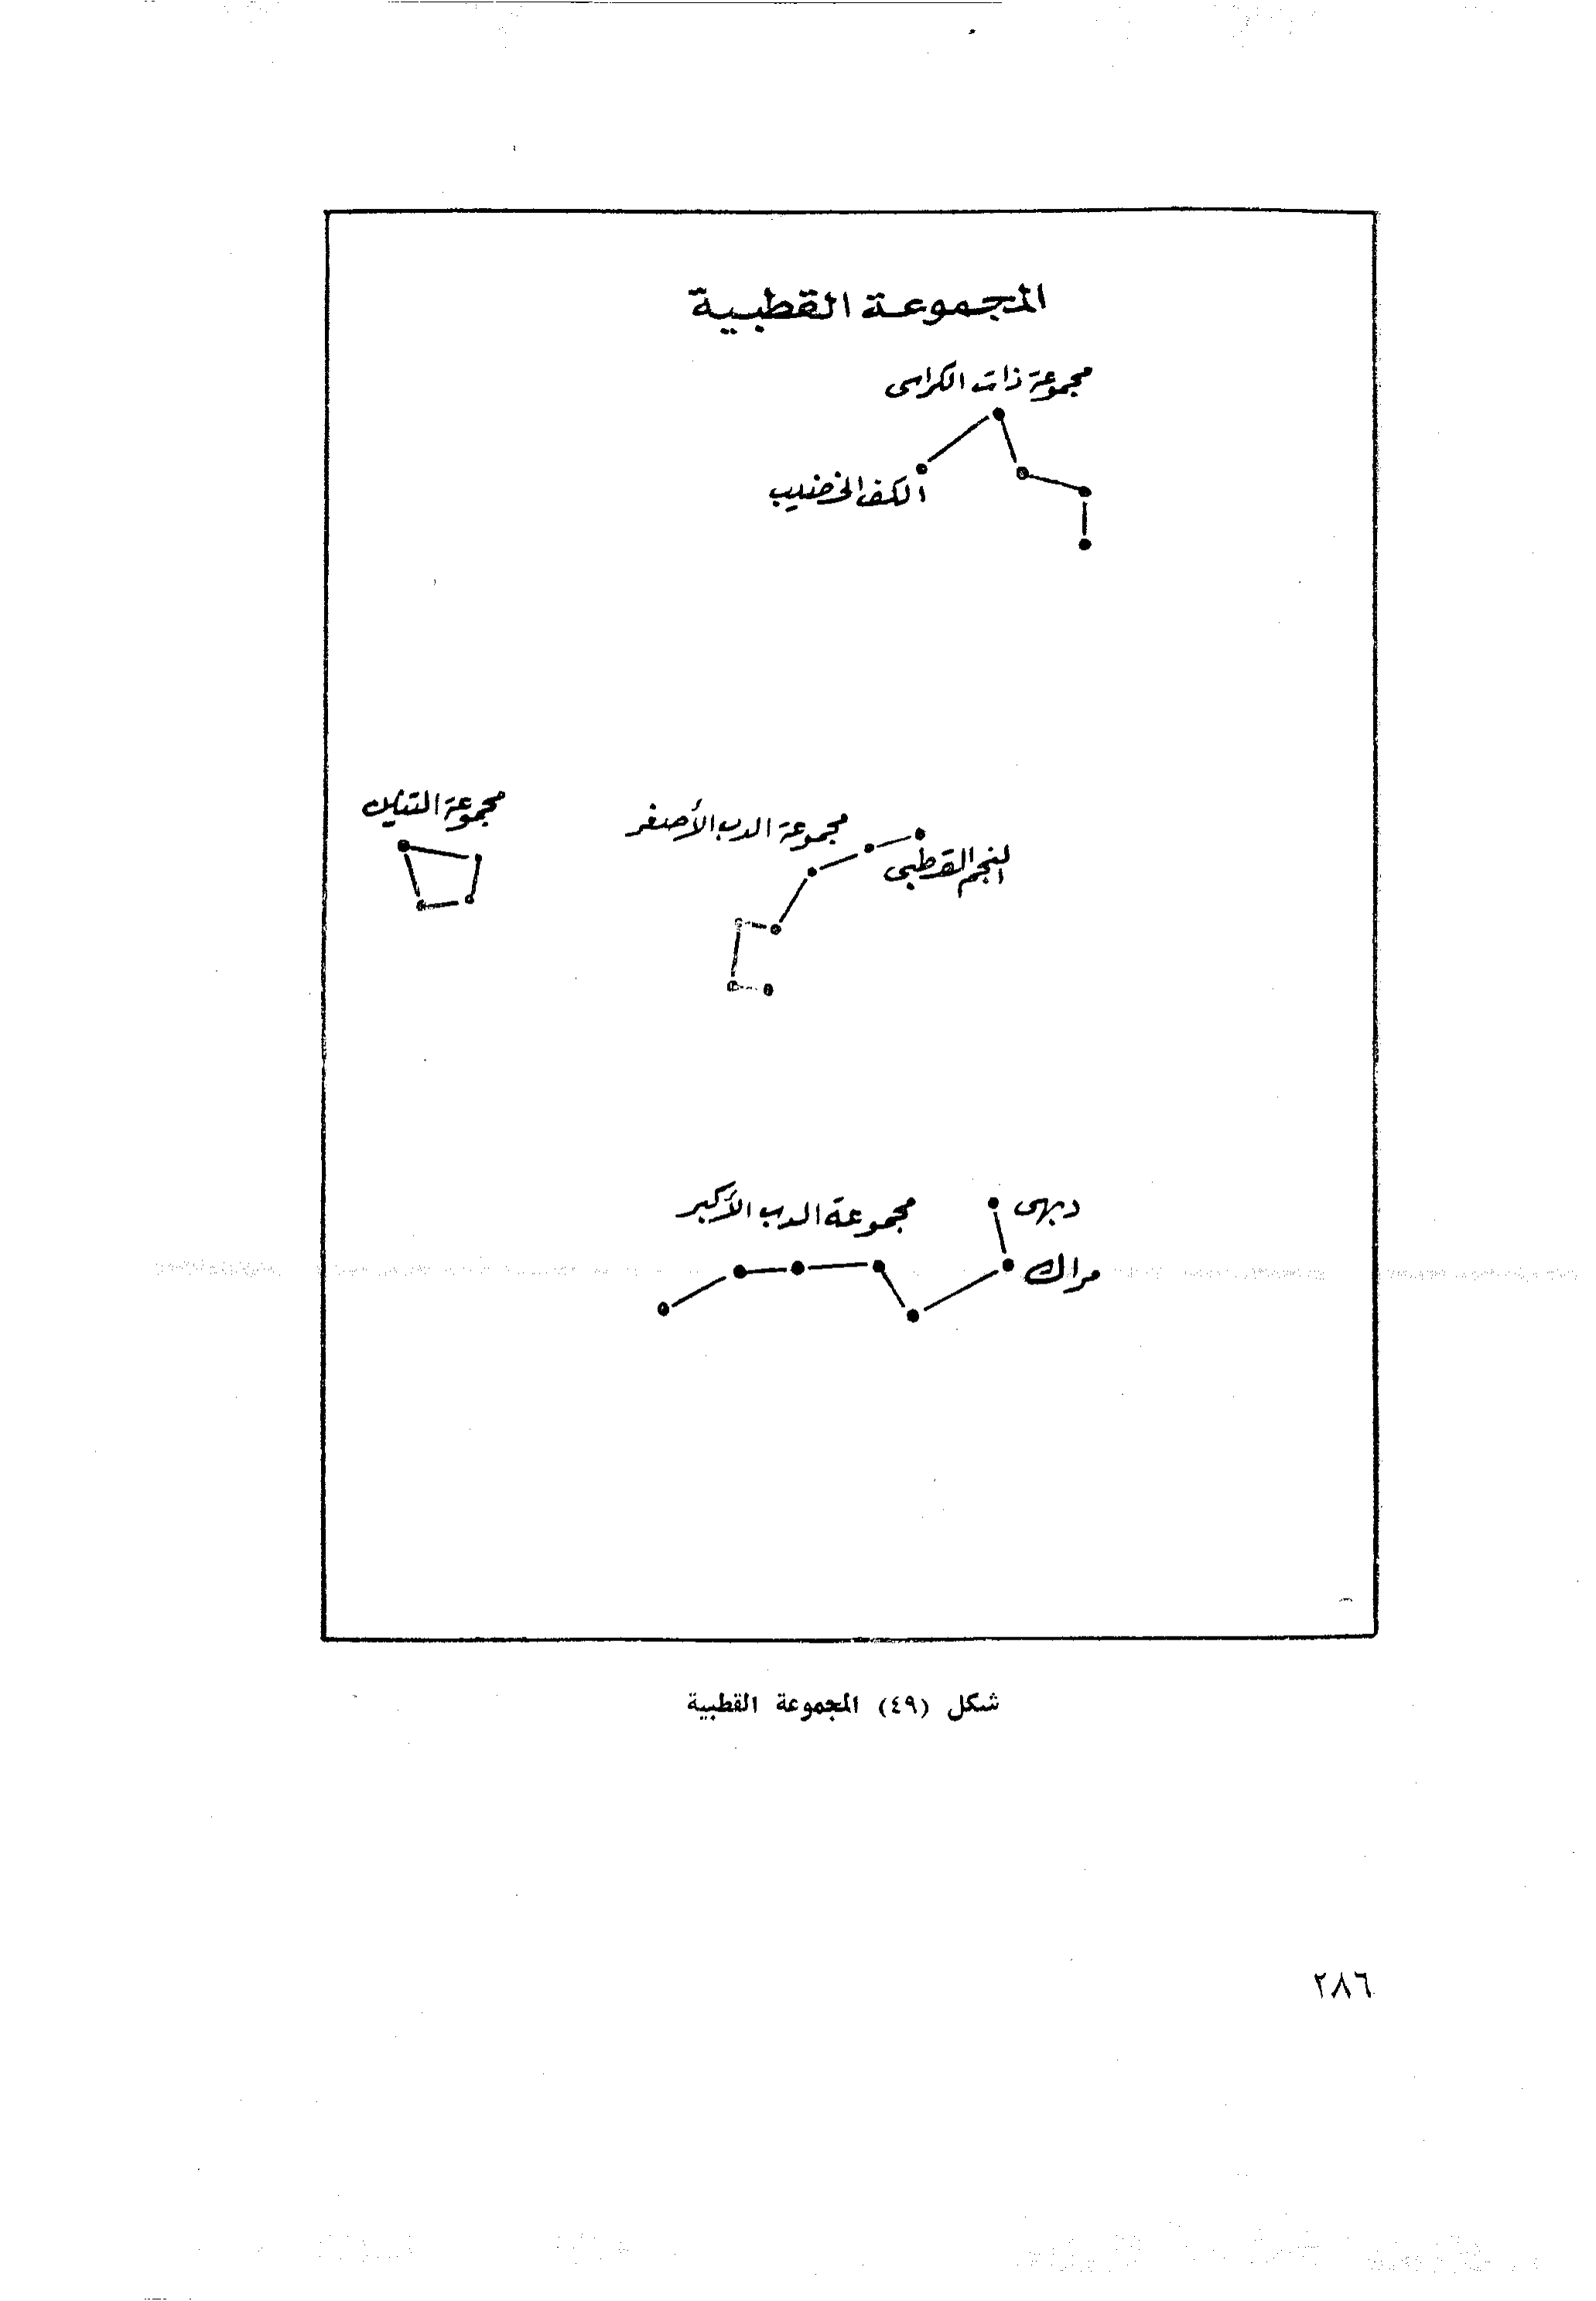 المجموعة القطبية
مجموعة ذات الكراسى
الكف الخضيب
مجموعة التنين
مجموعة الدب الأصغر
النجم القطبى
مجموعة الدب الأكبر
دبهى
مراك
شكل (٤٩) المجموعة القطبية
٢٨٦